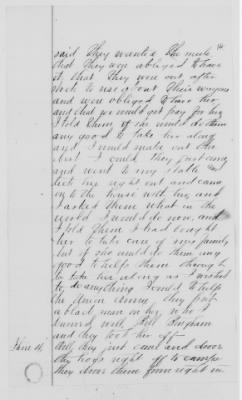 said They wanted the mule
that They were obliged to have
it, that They were out after
stock to use about Their wagons
and were obliged to have her,
and that we would get pay for her,
I told them if she would do them
any good to take her along
and, I would make out the
best I could, they just
and went to my stable
led her right out and came
on to the house with her, and
I asked them what in the
world I would do now, and
I told Them I had bought
her to take care of my family
but if she would do them any
good to help them through
to take her along as I wished
to do anything I could to help
the Union Army, they put
a black man on her, who I
learned was Bill Bingham
and they took her off
Well, they just came and drove
the hogs right off to camp
they drove them from right in